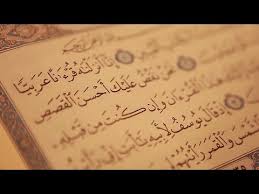 أَنزَلْنَٰهُ قُرْءَٰنًا عَرَبِيًّا
نَحْنُ نَقُصُّ عَلَيْكَ أَحْسَنَ ٱلْقَصَصِ
هَٰذَا ٱلْقُرْءَانَ وَإِن كُنتَ مِن قَبْلِهِۦ
إِذْ قَالَ يُوسُفُ لِأَبِيهِ يَٰٓأَبَتِ إِنِّى
وَٱلشَّمْسَ وَٱلْقَمَرَ رَأَيْتُهُمْ